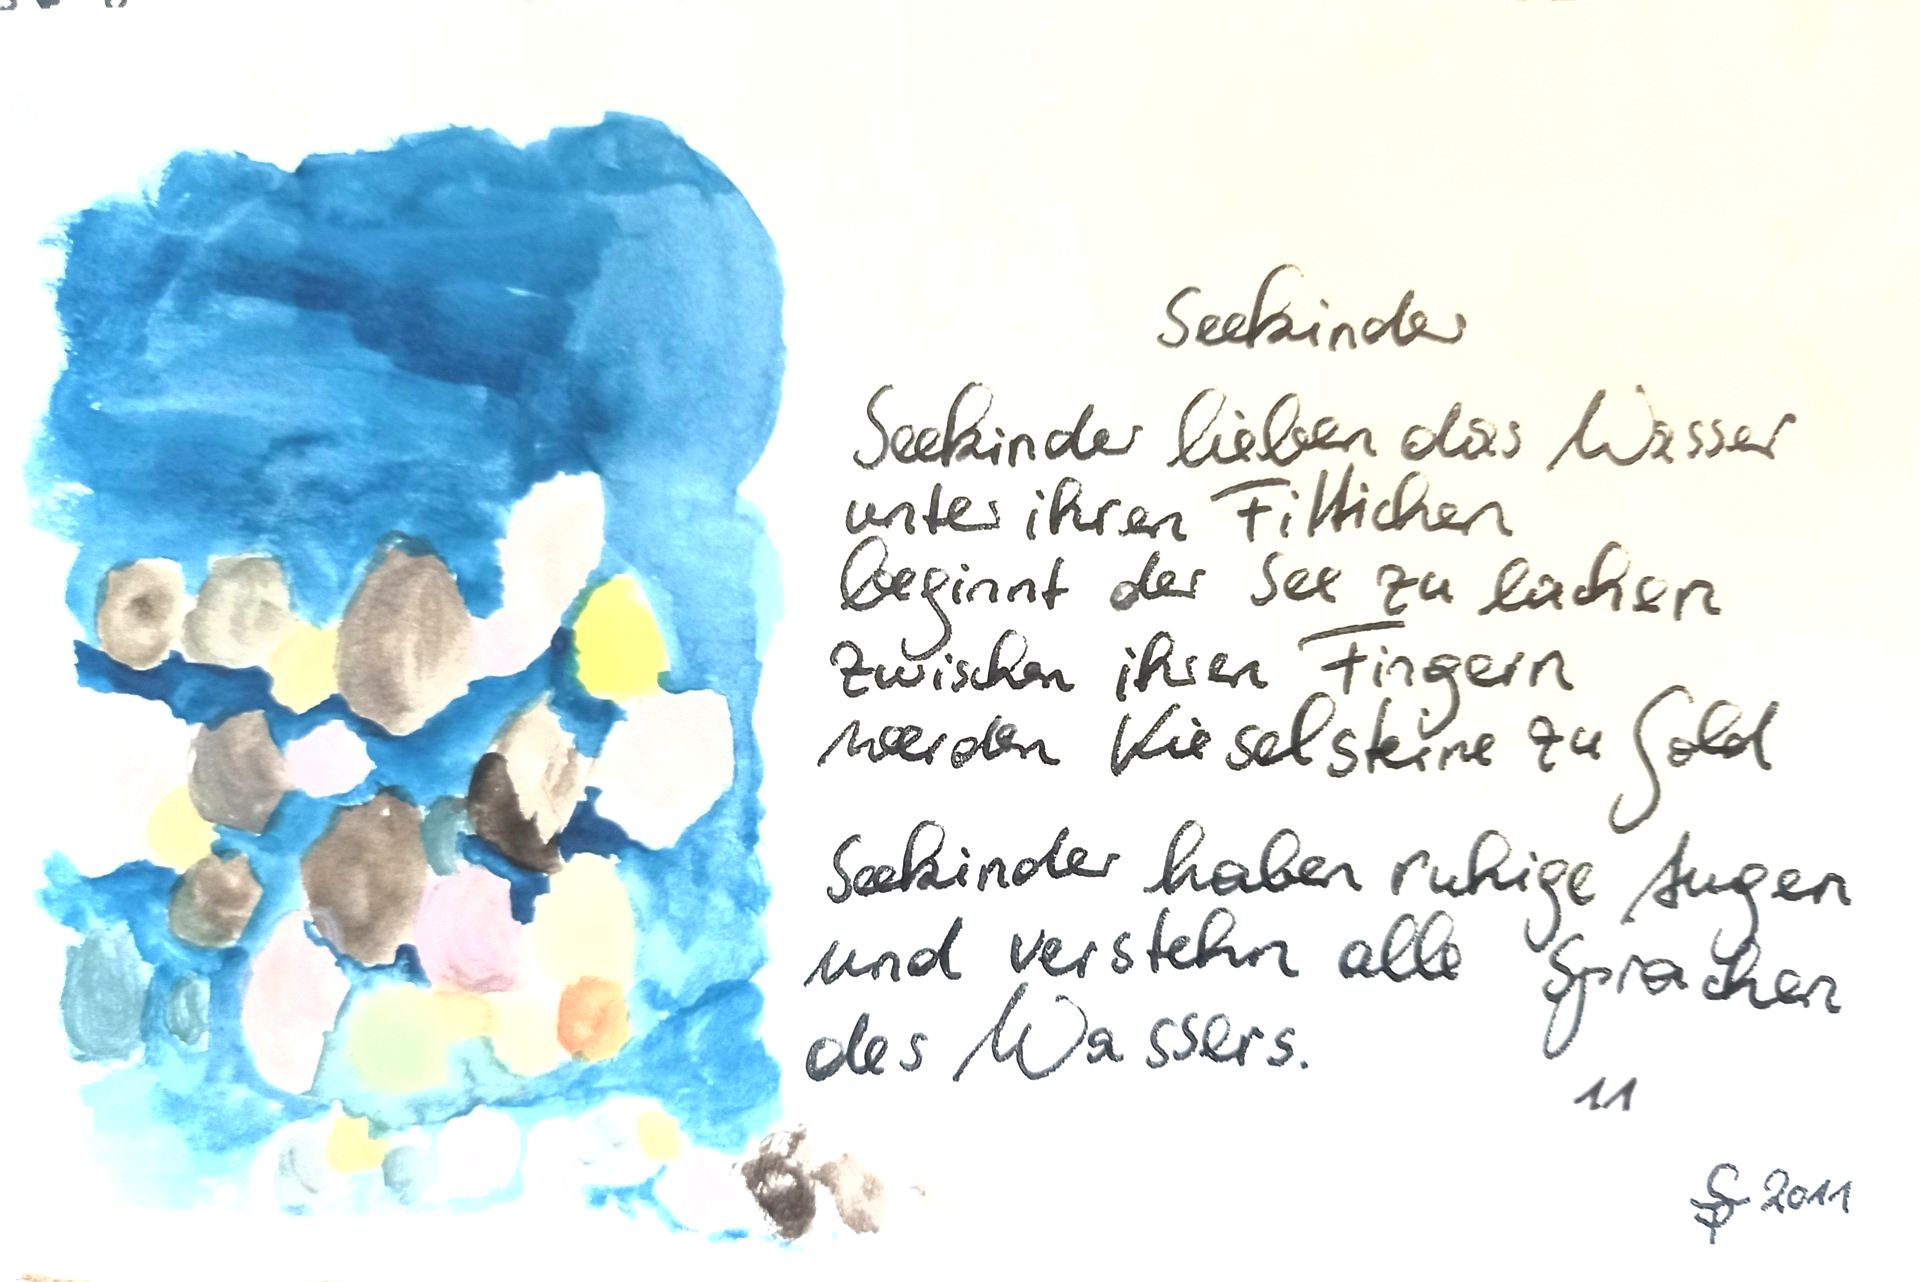 Seekinder
Seekinder lieben das Wasser
unter ihren Fittichen
beginnt der See zu lachen
zwischen ihren Fingern
werden Kieselsteine zu Gold
Seekinder haben ruhige Augen
und verstehn alle Sprachen
des Wassers.
11
2011